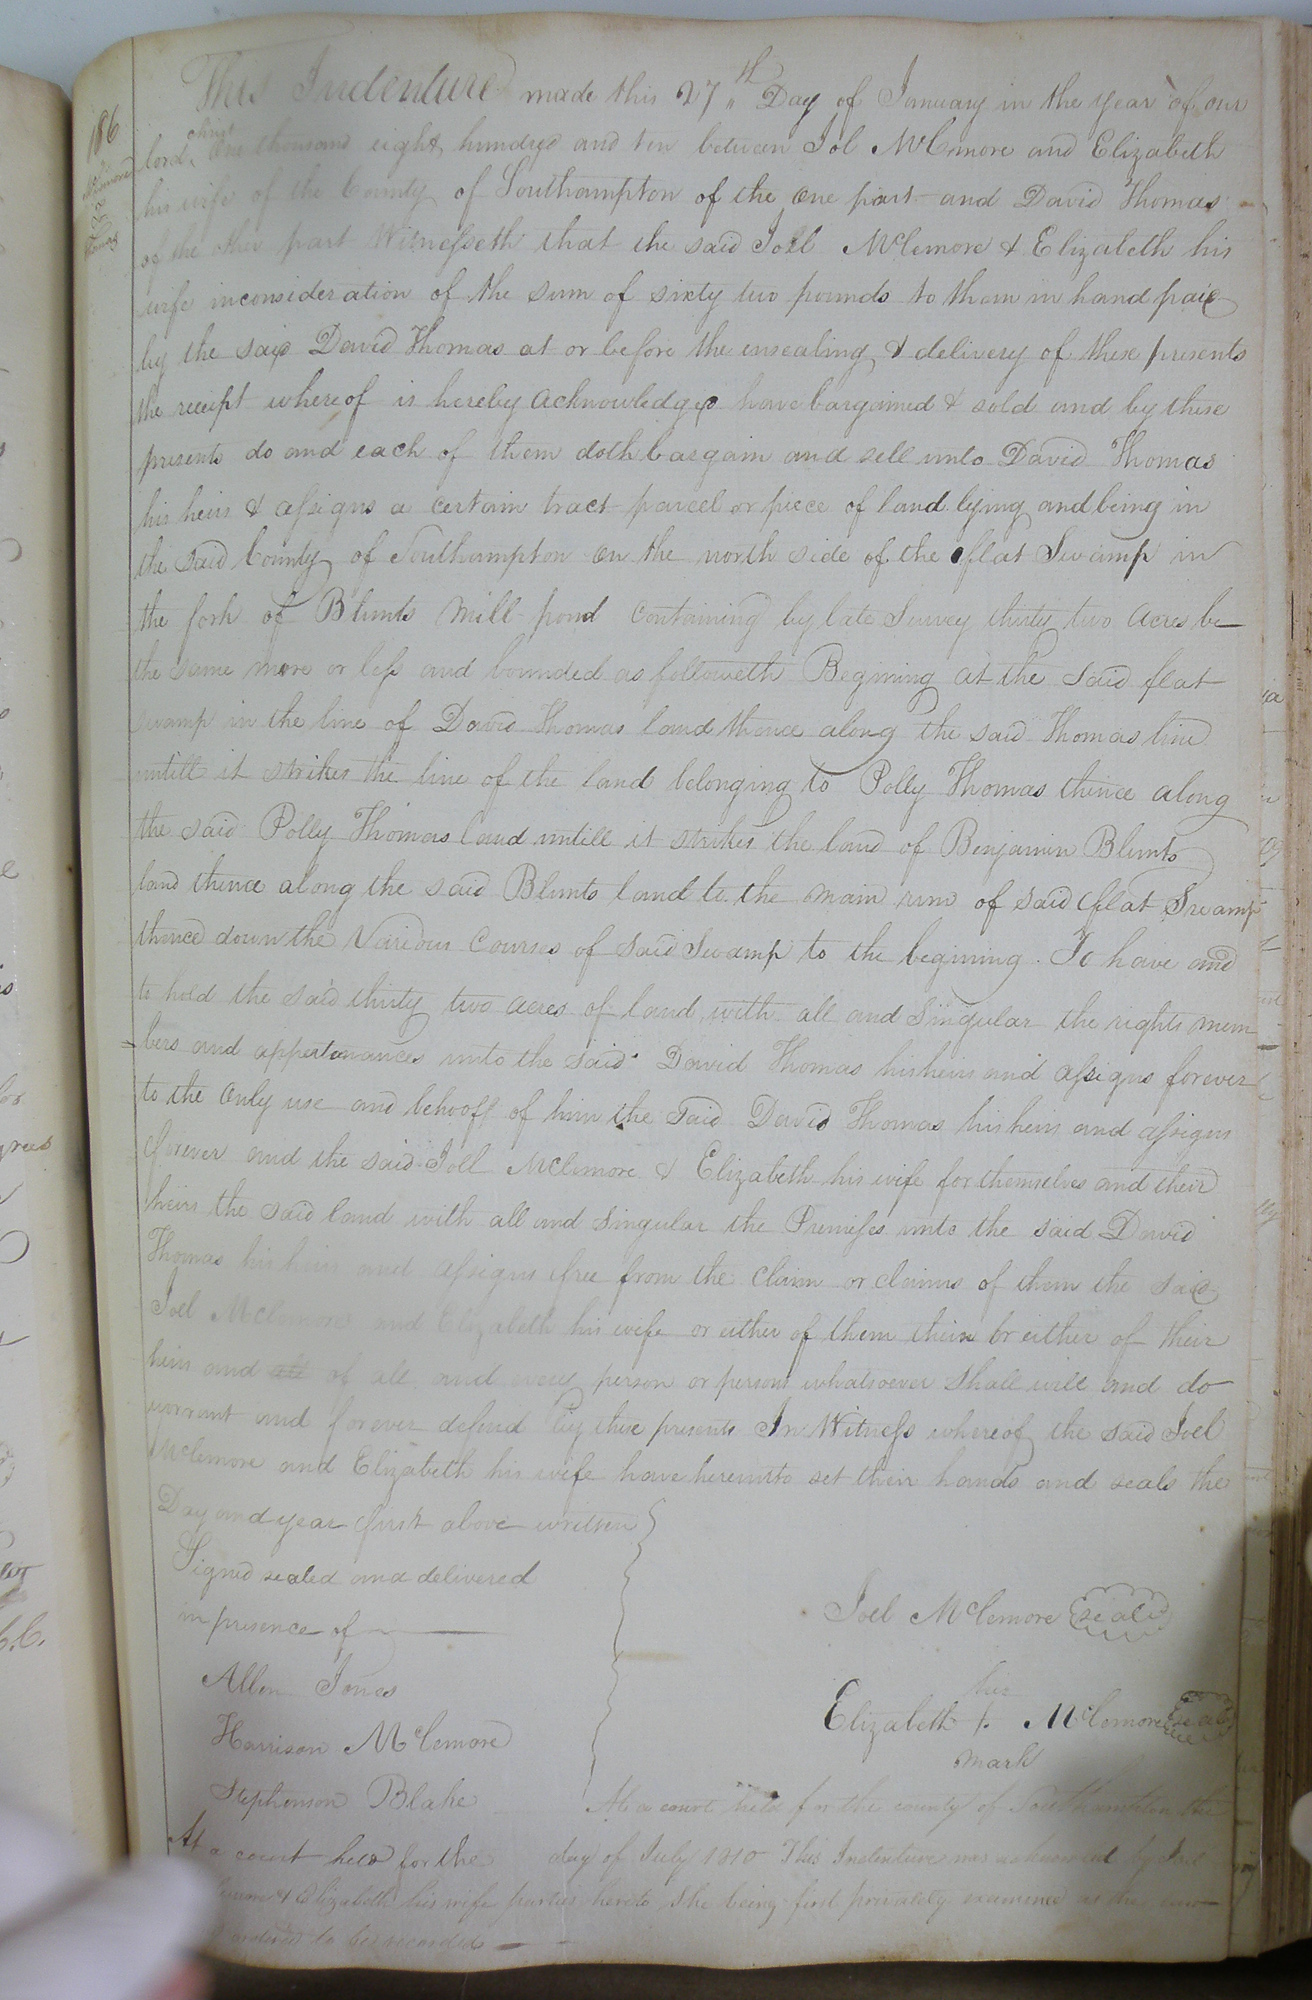 186
McLemore
to
Thomas
This Indenture made this 27th Day of January in the year of our
lord christ One thousand eight hundred and ten between Jol McLemore and Elizabeth
his wife of the County of Southampton of the one part and David Thomas
of the other part Witnesseth that the said Joel McLemore & Elizabeth his
wife inconsideration of the sum of sixty two pounds to them in hand paid
by the said David Thomas at or before the ensealing & delivery of these presents
the receipt whereof is hereby acknowledged have bargained & sold and by these
presents do and each of them doth bargain and sell unto David Thomas
his heirs & assigns a certain tract parcel or piece of land lying and being in
the said County of Southampton on the north side of the flat Swamp in
the fork of Blunts Mill pond Containing by late Survey thirty two Acres be
the same more or less and bounded as followeth Begining at the said flat
swamp in the line of David Thomas land thence along the said Thomas line
untill it strikes the line of the land belonging to Polly Thomas thence along
the said Polly Thomas land untill it strikes the land of Benjamin Blunts
land thence along the said Blunts land to the main run of said flat Swamp
thence down the Various Courses of said Swamp to the begining. To have and
to hold the said thirty two acres of land with all and Singular the rights mem
bers and appertenances unto the said David Thomas his heirs and assigns forever
to the only use and behooff of him the said David Thomas his heirs and assigns
forever and the said Joll McLemore & Elizabeth his wife for themselves and their
heirs the said land with all and Singular the Premises unto the said David
Thomas his heirs and assigns free from the Claim or claims of them the said
Joel McLemore and Elizabeth his wife or either of them their or either of their
heirs and of all and every person or persons whatsoever Shall will and do
warrant and forever defend by these presents In Witness whereof the said Joel
McLemore and Elizabeth his wife have hereunto set their hands and seals the
Day and year first above written
Signed sealed and delivered
in presence of
Joel McLemore seal
Allen Jones
her
Elizabeth +. McLemore seal
mark
Harrison McLemore
Stephenson Blake
At a court held for the county of Southampton the
At a court held for the day of July 1810 This Indenture was acknowledged by Joel
& Elizabeth his wife parties hereto she being first privately examined as the law
ordered to be recorded